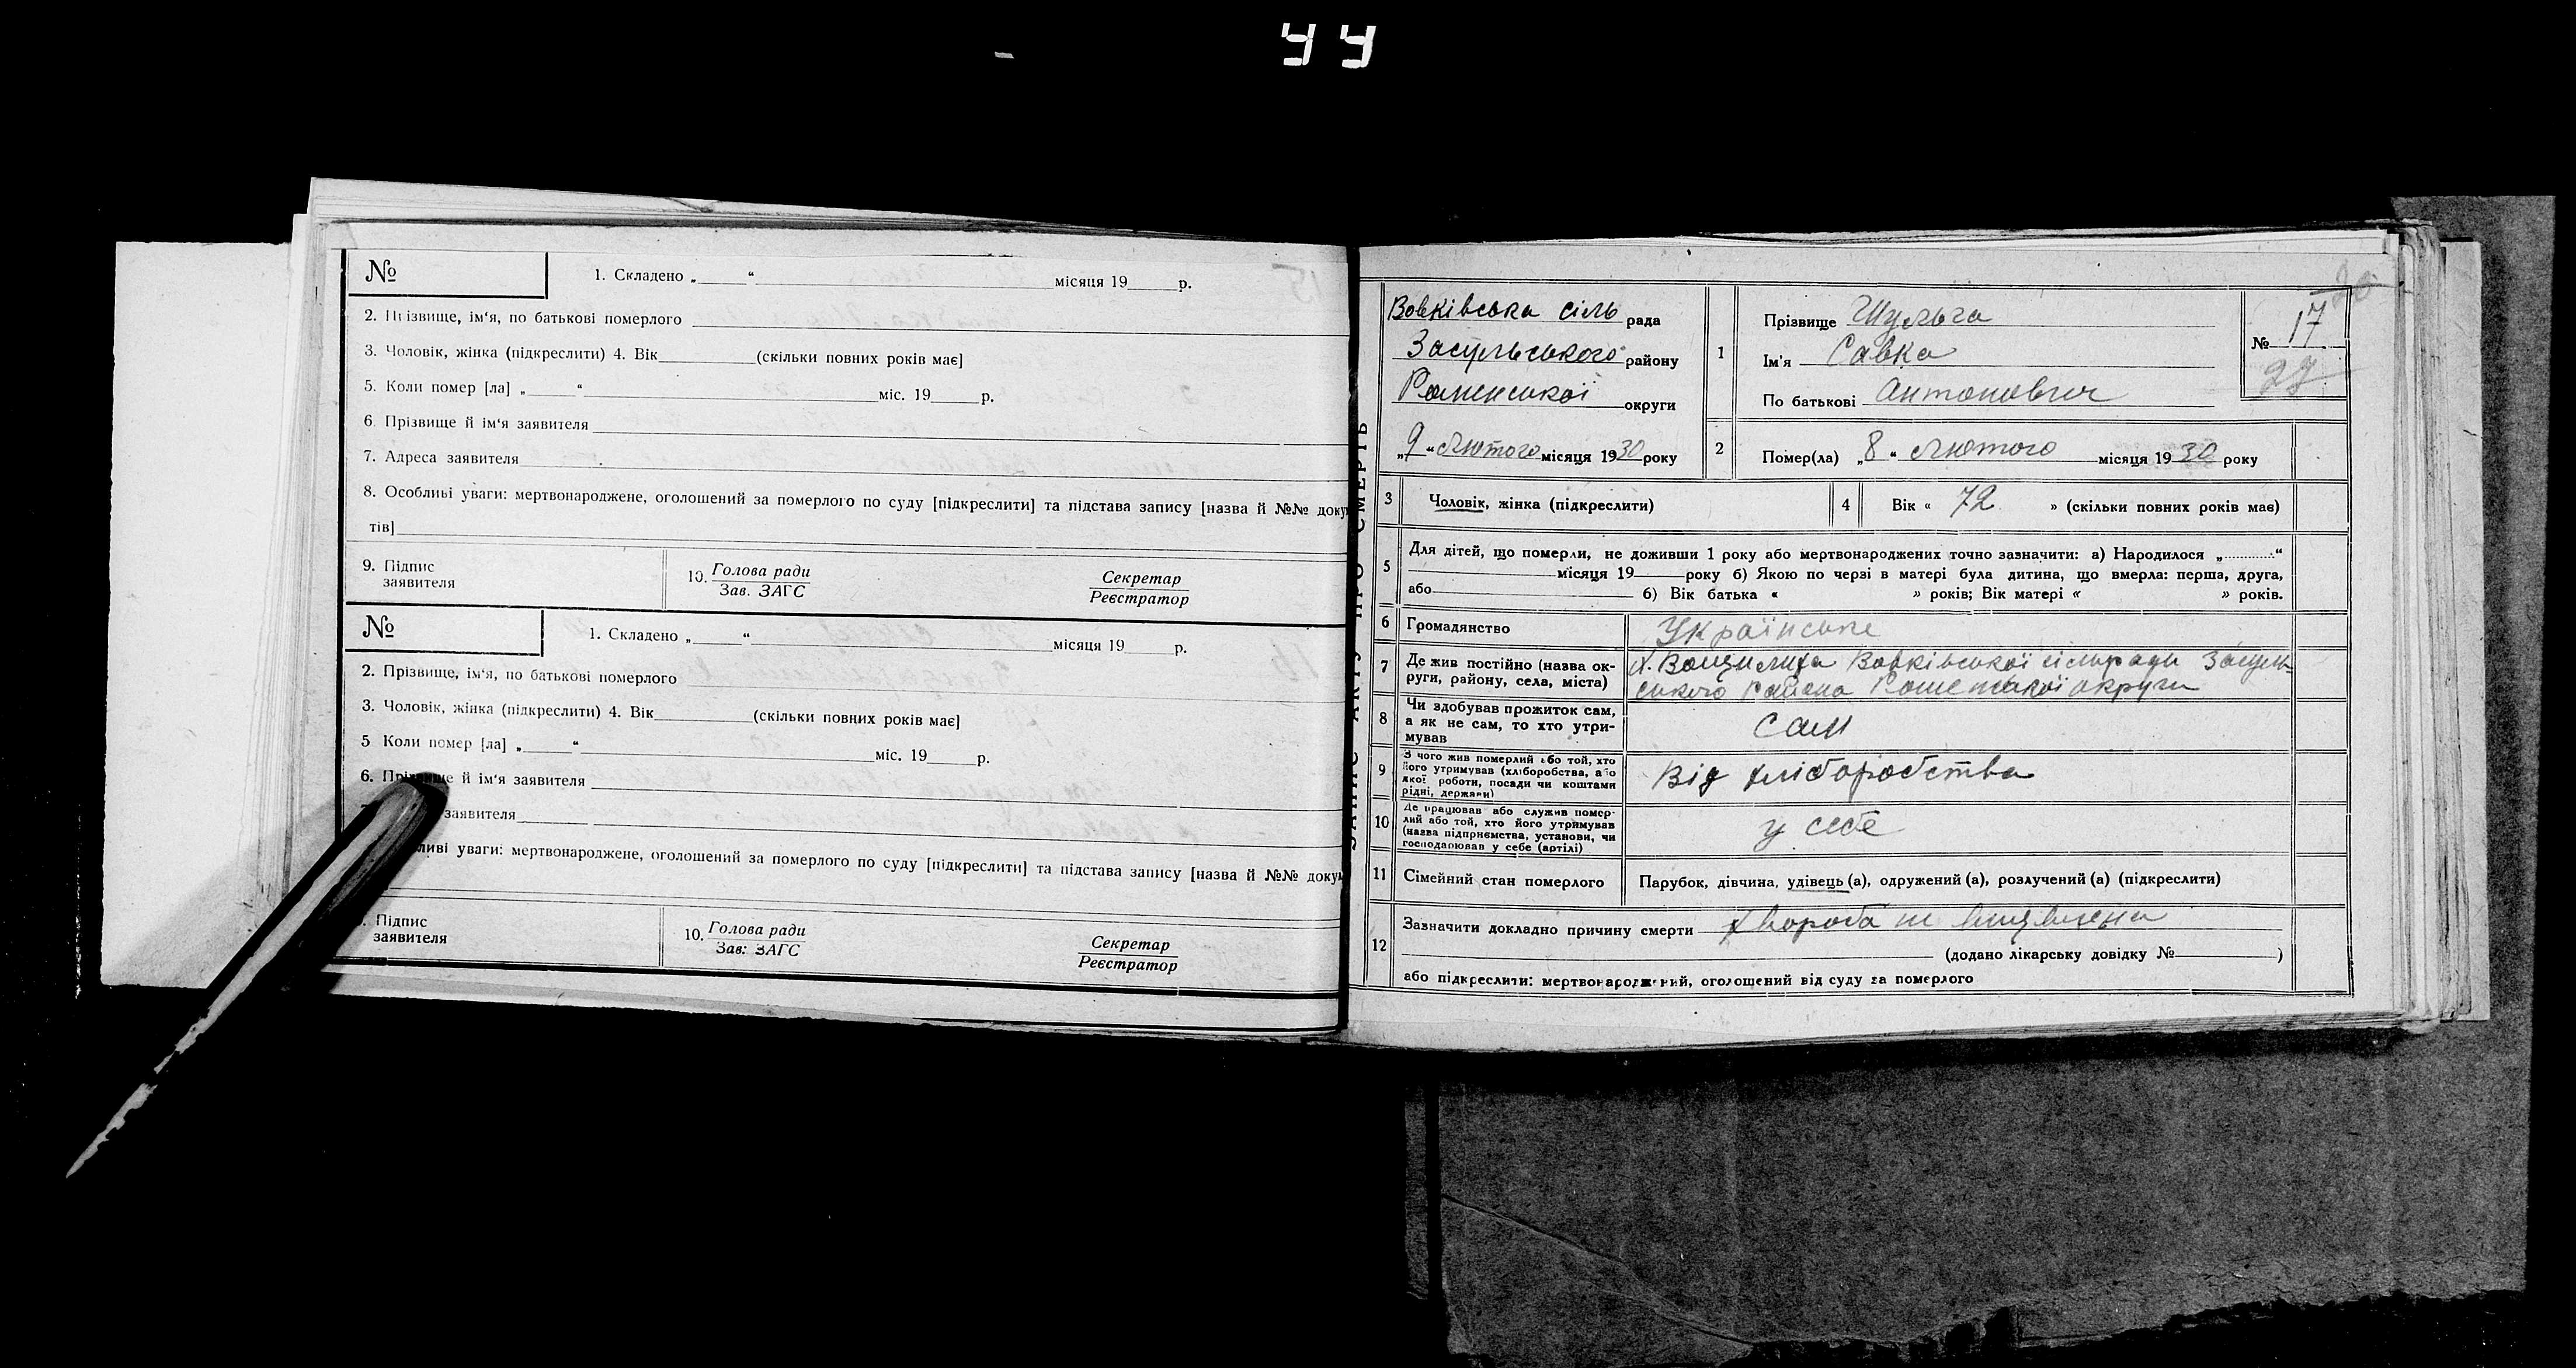 44
№
1. Складено „ “ місяця 19 р.
2. Прізвище, ім‘я, по батькові померлого
3. Чоловік, жінка (підкреслити) 4. Вік (скільки повних років має]
5. Коли помер [ла] „ “ міс. 19 р.
6. Прізвище й ім‘я заявителя
7. Адреса заявителя
8. Особливі уваги: мертвонароджене, оголошений за померлого по суду [підкреслити] та підстава запису [назва й №№ доку
тів]
9. Підпис
заявителя
10. Голова ради
Зав. ЗАГС
Секретар
Реєстратор
№
1. Складено „ “ місяця 19 р.
2. Прізвище, ім‘я, по батькові померлого
3. Чоловік, жінка (підкреслити) 4. Вік (скільки повних років має]
5 Коли помер [ла] „ “ міс. 19 р.
6. Прізвище й ім‘я заявителя
заявителя
ливі уваги: мертвонароджене, оголошений за померлого по суду [підкреслити] та підстава запису [назва й №№ докум
Підпис
заявителя
10. Голова ради
Зав: ЗАГС
Секретар
Реєстратор
ЗАПИС АКТУ ПРО СМЕРТЬ
Вовківська сіль рада
Засульського району
Роменської округи
„9“ Лютого місяця 1930 року
1
Прізвище Шульга
Ім'я Савка
По батькові Антонович
№ 17
27
2
Помер(ла) „8“ Лютого місяця 1930 року
3 Чоловік, жінка (підкреслити)
4 Вік « 72 » (скільки повних років має)
5 Для дітей, що померли, не доживши 1 року або мертвонароджених точно зазначити: а) Народилося „ “
місяця 19 року б) Якою по черзі в матері була дитина, що вмерла: перша, друга,
або 6) Вік батька « » років; Вік матері « » років.
6 Громадянство Українське
7 Де жив постійно (назва ок-
руги, району, села, міста)
х. Вощилиха Вовківської сільради Засуль-
ського района Роменської округи
8 Чи здобував прожиток сам,
а як не сам, то хто утри-
мував
сам
9 З чого жив померлий або той, хто
його утримував (хліборобства, або
якої роботи, посади чи коштами
рідні, держави)
Від хліборобства
10 Де працював або служив помер-
лий або той, хто його утримував
(назва підприємства, установи, чи
господарював у себе (артілі)
у себе
11 Сімейний стан померлого Парубок, дівчина, удівець (а), одружений (а), розлучений (а) (підкреслити)
12 Зазначити докладно причину смерти хвороба не виявлена
(додано лікарську довідку № )
або підкреслити: мертвонароджений, оголошений від суду за померлого